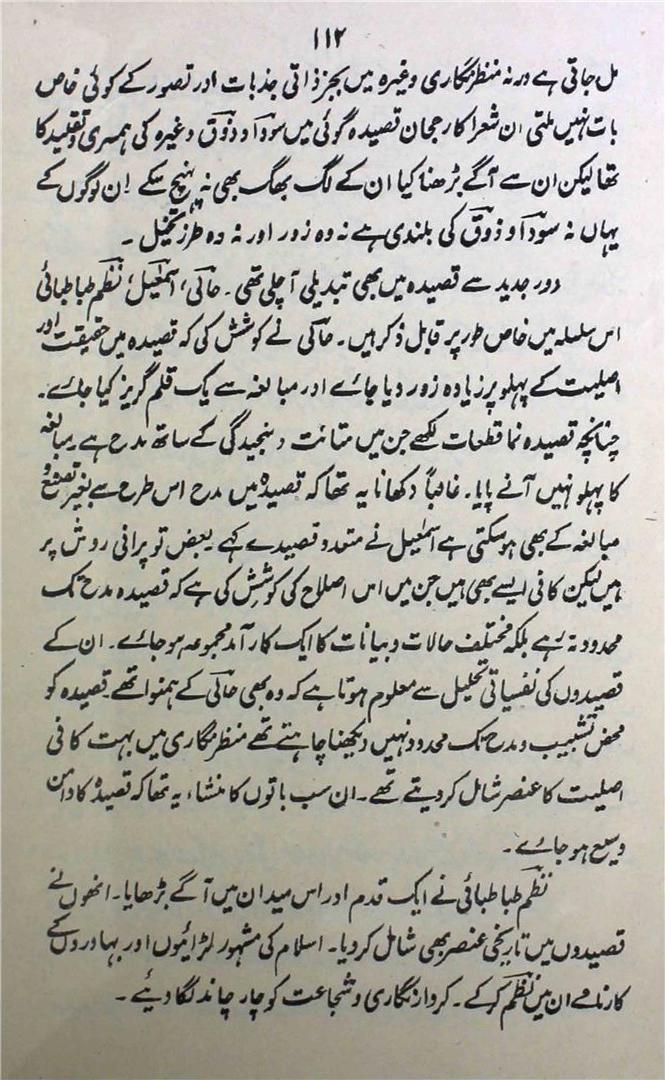 ۱۱۲
مل جاتی ہے ورنہ منظر نگاری وغیرہ میں بجز ذاتی جذبات اور تصور کے کوئی خاص
بات نہیں ملتی ان شعرا کا رجحان قصیدہ گوئی میں سودا و ذوق وغیرہ کی ہمسری و تقلید کا
تھا لیکن ان سے آگے بڑھنا کیا ان کے لگ بھگ بھی نہ پہنچ سکے ان لوگوں کے
یہاں نہ سودا و ذوق کی بلندی ہے نہ وہ زور اور نہ وہ طرز تخیل ۔
دور جدید سے قصیدہ میں بھی تبدیلی آ چلی تھی ۔ حالی، اسمٰعیل، نظم طباطبائی
اس سلسلہ میں خاص طور پر قابل ذکر ہیں ۔ حالی نے کوشش کی کہ قصیدہ میں حقیقت اور
اصلیت کے پہلو پر زیادہ زور دیا جائے اور مبالغہ سے یک قلم گریز کیا جائے ۔
چنانچہ قصیدہ نما قطعات لکھے جن میں متانت و سنجیدگی کے ساتھ مدح ہے ۔ مبالغہ
کا پہلو نہیں آنے پایا ۔ غالباً دکھانا یہ تھا کہ قصیدہ میں مدح اس طرح سے بغیر تصنع و
مبالغہ کے بھی ہو سکتی ہے اسمٰعیل نے متعدد قصیدے کہے ۔ بعض تو پرانی روش پر
ہیں لیکن کافی ایسے بھی ہیں جن میں اس اصلاح کی کوشش کی ہے کہ قصیدہ مدح تک
محدود نہ رہے بلکہ مختلف حالات و بیانات کا ایک کار آمد مجموعہ ہو جائے ۔ ان کے
قصیدوں کی نفسیاتی تحلیل سے معلوم ہوتا ہے کہ وہ بھی حالی کے ہمنوا تھے ۔ قصیدہ کو
محض تشبیب و مدح تک محدود نہیں دیکھنا چاہتے تھے منظر نگاری میں بہت کافی
اصلیت کا عنصر شامل کر دیتے تھے ۔ ان سب باتوں کا منشاء یہ تھا کہ قصیدہ کا دامن
وسیع ہو جائے ۔
نظم طباطبائی نے ایک قدم اور اس میدان میں آگے بڑھایا ۔ انھوں نے
قصیدوں میں تاریخی عنصر بھی شامل کر دیا ۔ اسلام کی مشہور لڑائیوں اور بہادروں کے
کارنامے ان میں نظم کر کے ۔ کردار نگاری و شجاعت کو چار چاند لگا دیئے ۔